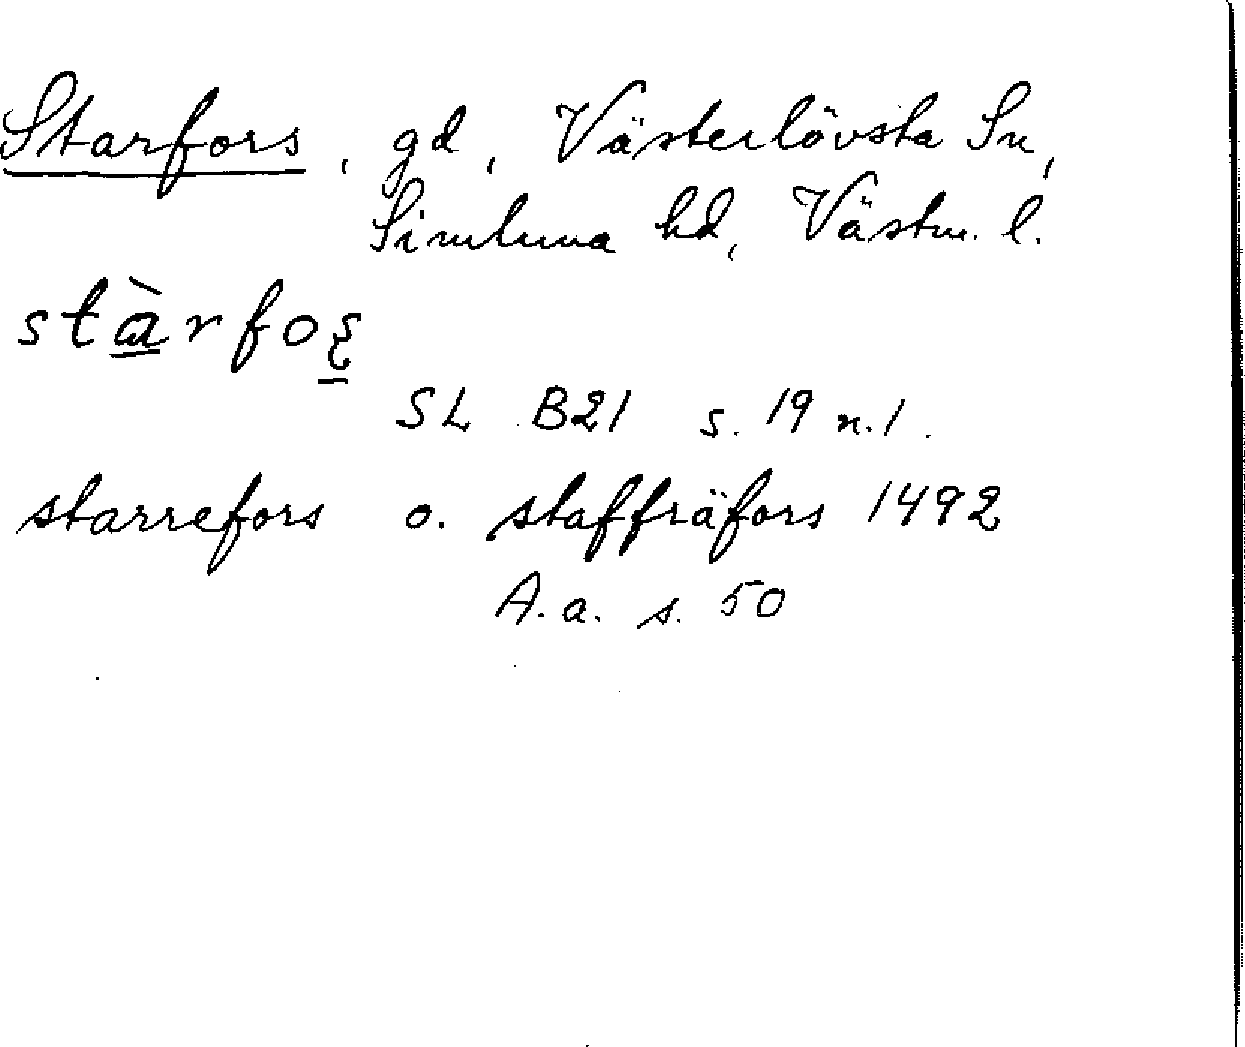 Starfors, gd, Västerlövsta Sn,
Simtuna hd, Västm. l.
stàrfoʂ
SL B21 s. 19 n. 1.
starrefors o. staffräfors 1492
A. a. s. 50